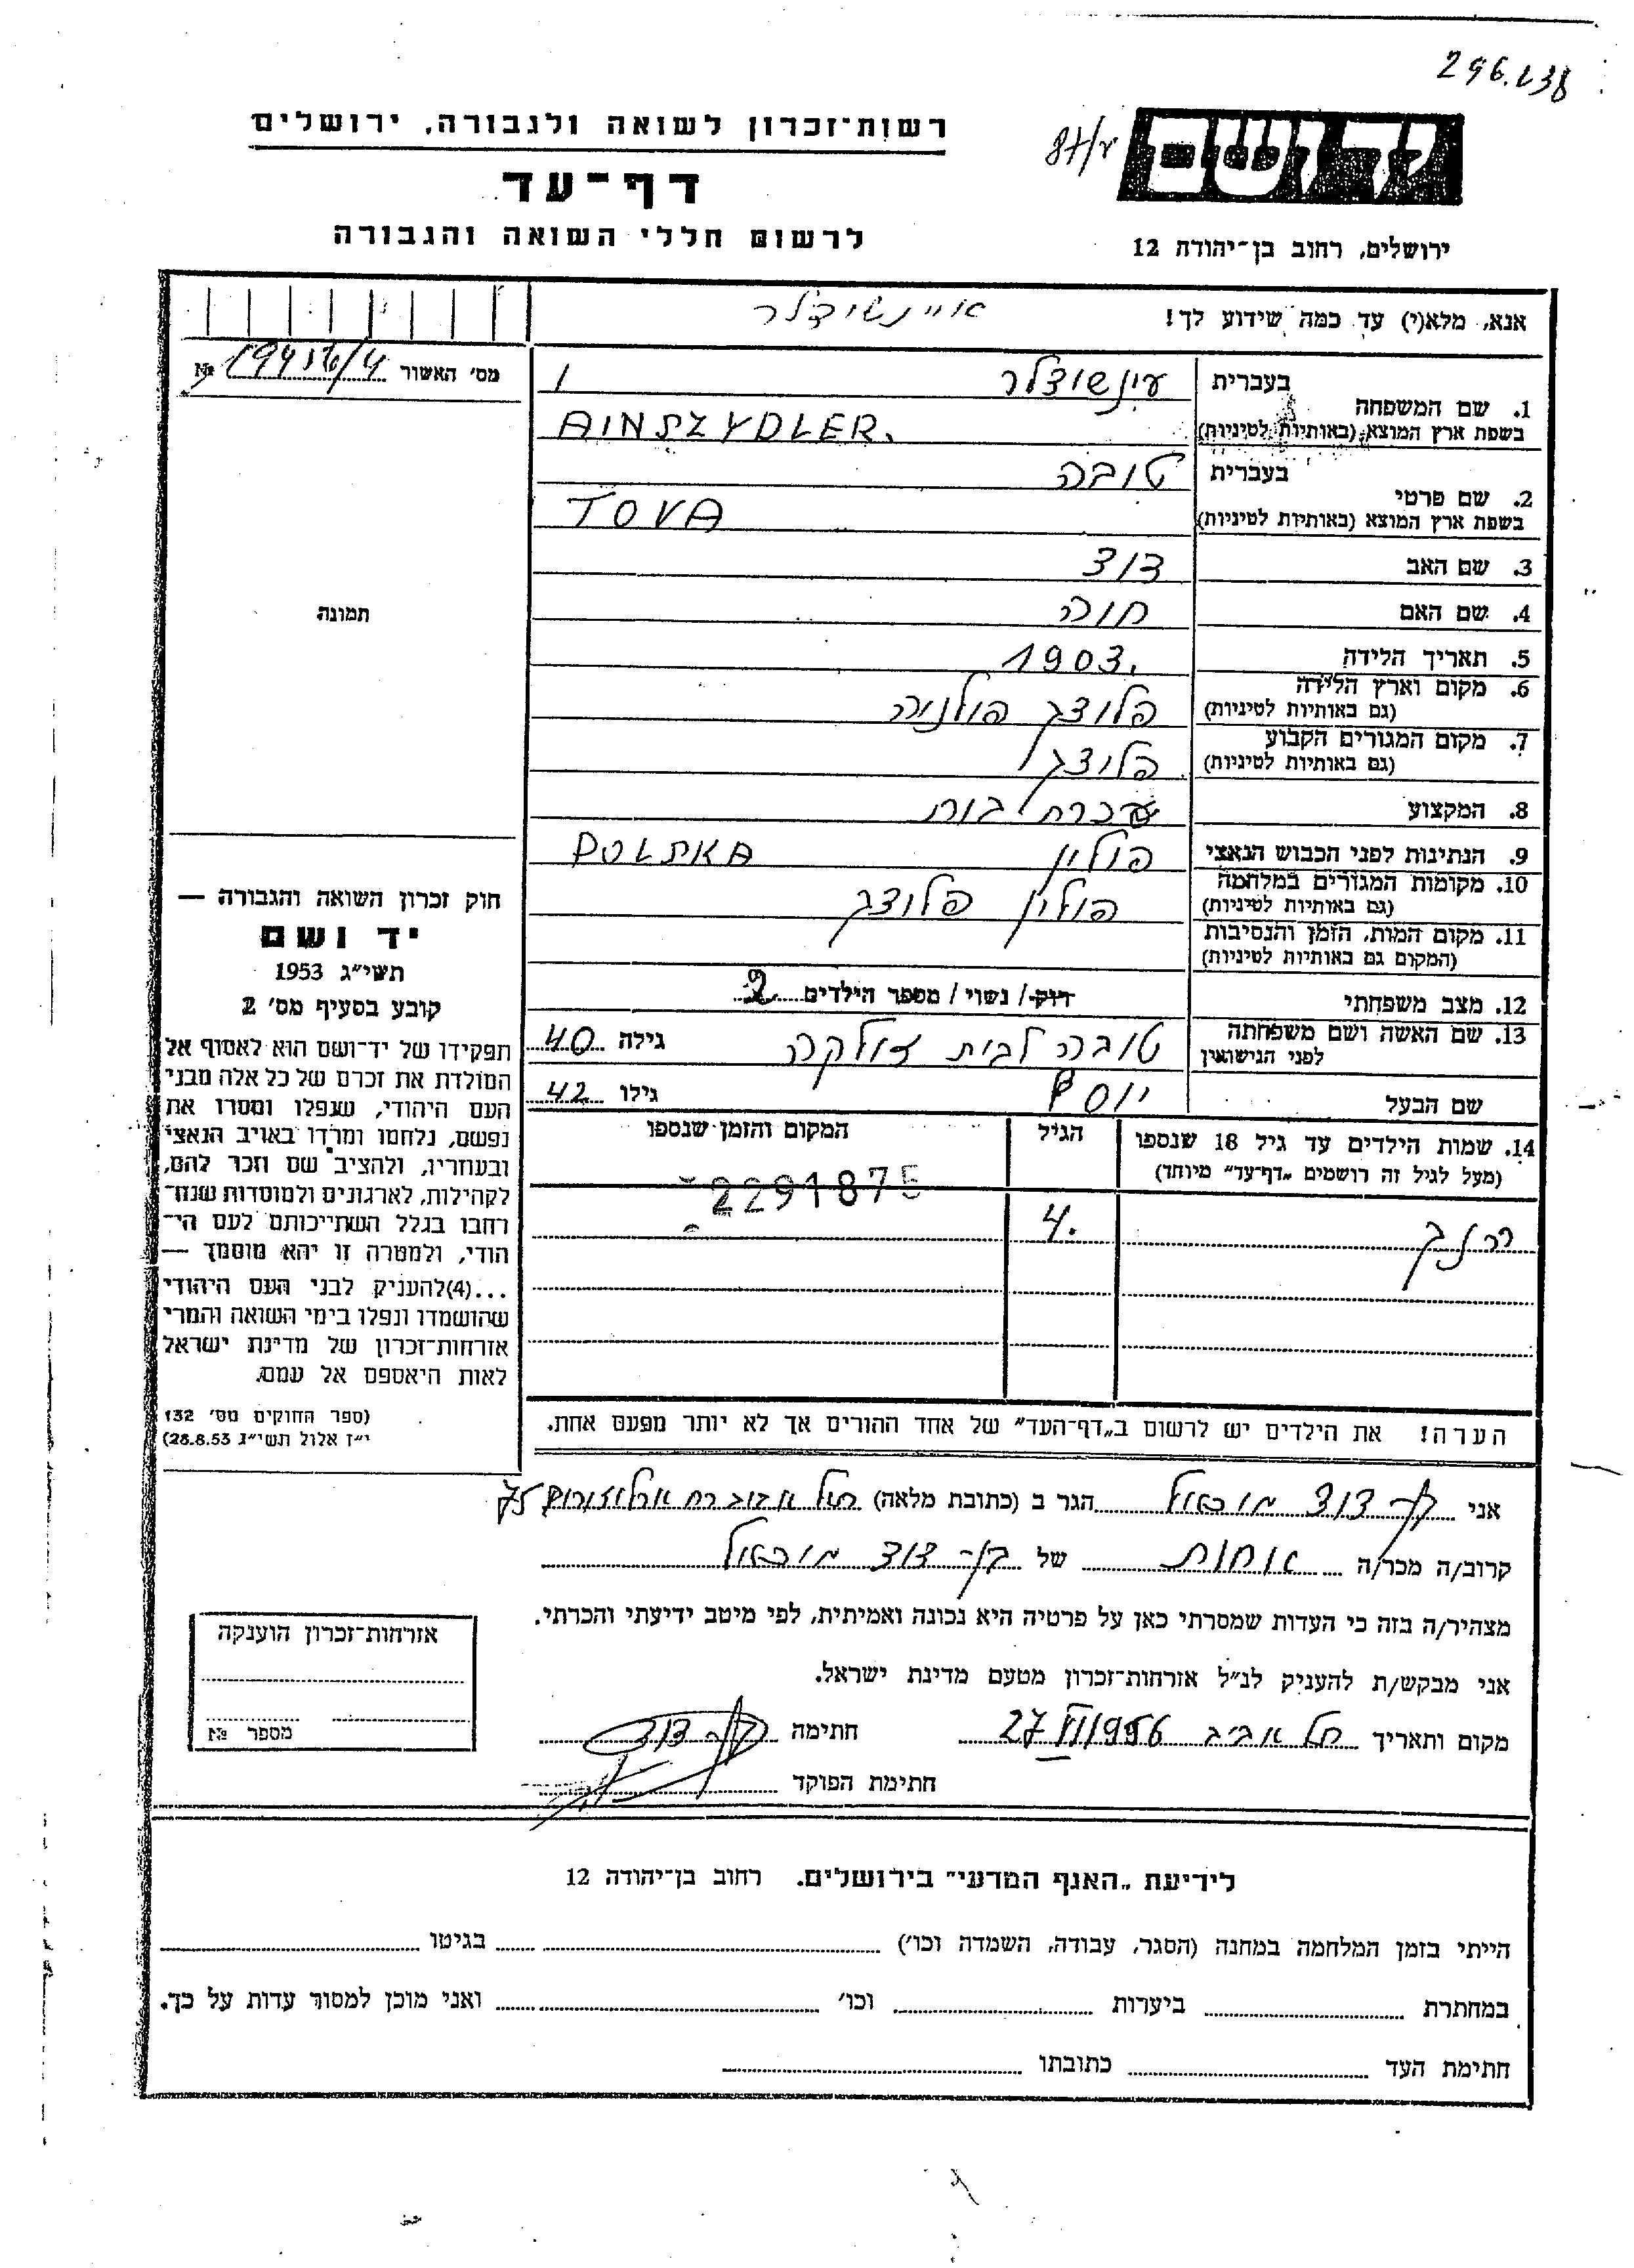 296.238
רשות־זכרון לשואה ולגבורה, ירושלים
87/ז
יד ושם
דף־עד
לרשום חללי השואה והגבורה
ירושלים, רחוב בן־יהודה 12
אנא, מלא(י) עד כמה שידוע לך!
איינשידלר
מס׳ האשור № 19456/4
1. שם המשפחה בעברית עינשידלר
בשפת ארץ המוצא (באותיות לטיניות) AINSZYDLER.
2. שם פרטי בעברית טובה
בשפת ארץ המוצא (באותיות לטיניות) TOVA
3. שם האב דוד
4. שם האם חוה
תמונה
5. תאריך הלידה 1903.
6. מקום וארץ הלידה פלוצק פולניה
(גם באותיות לטיניות)
7. מקום המגורים הקבוע פלוצק
(גם באותיות לטיניות)
8. המקצוע עכרת בית
9. הנתינות לפני הכבוש הנאצי פולין POLSKA
10. מקומות המגורים במלחמה פולין פלוצק
(גם באותיות לטיניות)
11. מקום המות, הזמן והנסיבות
(המקום גם באותיות לטיניות)
12. מצב משפחתי רוק/ נשוי/ מספר הילדים 2
13. שם האשה ושם משפחתה לפני הנישואין טובה לבית זולקה גילה 40
שם הבעל יוסף גילו 42
14. שמות הילדים עד גיל 18 שנספו
(מעל לגיל זה רושמים „דף־עד״ מיוחד)
הגיל
המקום והזמן שנספו
2291875
הלנק 4.
הערה! את הילדים יש לרשום ב„דף־העד״ של אחד ההורים אך לא יותר מפעם אחת.
חוק זכרון השואה והגבורה —
יד ושם
תשי״ג 1953
קובע בסעיף מס׳ 2
תפקידו של יד־ושם הוא לאסוף אל
המולדת את זכרם של כל אלה מבני
העם היהודי, שנפלו ומסרו את
נפשם, נלחמו ומרדו באויב הנאצי
ובעוזריו, ולהציב שם וזכר להם,
לקהילות, לארגונים ולמוסדות שנח־
רחבו בגלל השתייכותם לעם הי־
הודי, ולמטרה זו יהא מוסמך —
...(4)להעניק לבני העם היהודי
שהושמדו ונפלו בימי השואה והמרי
אזרחות־זכרון של מדינת ישראל
לאות היאספם אל עמם.
(ספר החוקים מס׳ 132
י״ז אלול תשי״ג 28.8.53)
אני בן־דוד מיכאל הגר ב (כתובת מלאה) תל אביב רח ארלוזורוב 75
קרוב/ה מכר/ה אחות של בן־דוד מיכאל
מצהיר/ה בזה כי העדות שמסרתי כאן על פרטיה היא נכונה ואמיתית, לפי מיטב ידיעתי והכרתי.
אני מבקש/ת להעניק לנ״ל אזרחות־זכרון מטעם מדינת ישראל.
מקום ותאריך תל אביב 27 VI 1956 חתימה בן־דוד
חתימת הפוקד
אזרחות־זכרון הוענקה
מספר №
לידיעת „האגף המדעי״ בירושלים. רחוב בן־יהודה 12
הייתי בזמן המלחמה במחנה (הסגר, עבודה, השמדה וכו׳) בגיטו
במחתרת ביערות וכו׳ ואני מוכן למסור עדות על כך.
חתימת העד כתובתו